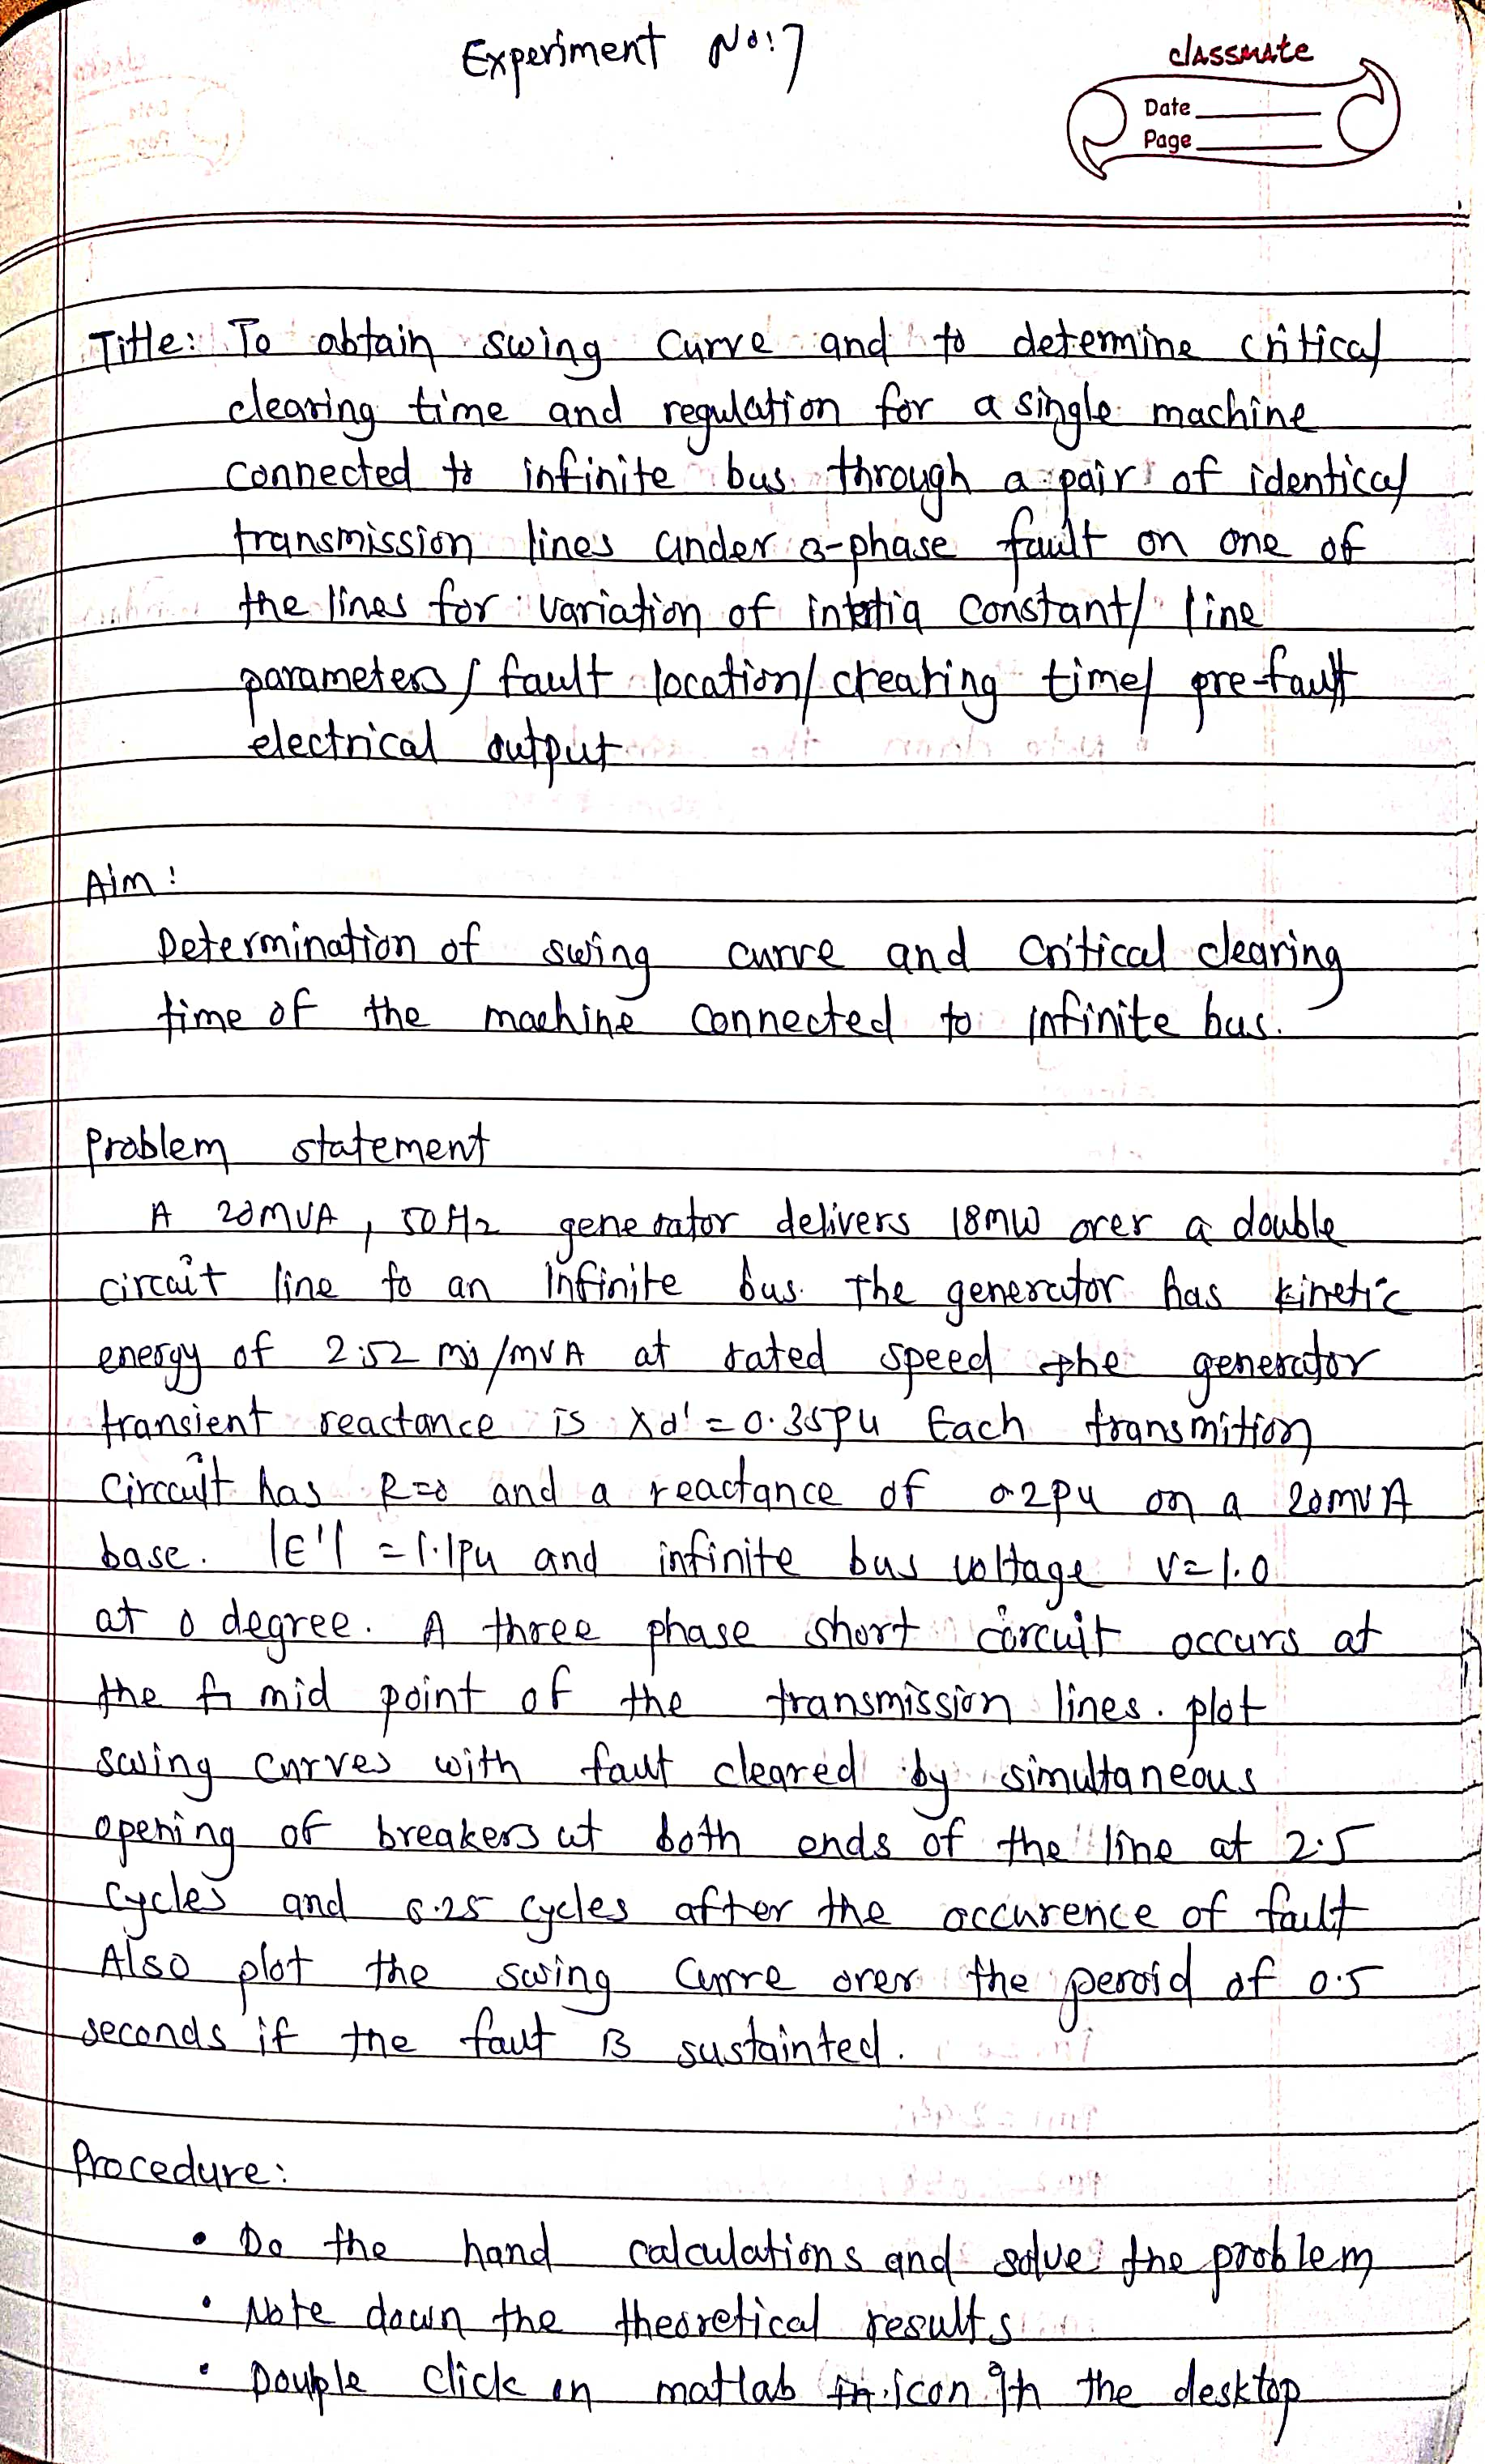 Experiment No:7
classmate
Date
Page
Title: To obtain swing curve and to determine critical
clearing time and regulation for a single machine
connected to infinite bus through a pair of identical
transmission lines under 3-phase fault on one of
the lines for variation of intertia constant/ line
parameters/ fault location/ crearing time/ pre-fault
electrical output
Aim:
Determination of swing curve and critical clearing
time of the machine connected to infinite bus.
Problem statement
A 20MVA, 50Hz generator delivers 18MW over a double
circuit line to an infinite bus. The generator has kinetic
energy of 2.52 MJ/MVA at rated speed the generator
transient reactance is Xd' = 0.35pu Each transmition
circuit has R=0 and a reactance of 0.2pu on a 20MVA
base. |E'| = 1.1pu and infinite bus voltage V=1.0
at 0 degree. A three phase short circuit occurs at
the mid point of the transmission lines. plot
swing curves with faut cleared by simultaneous
opening of breakers at both ends of the line at 2.5
cycles and 6.25 cycles after the occurence of fault
Also plot the swing curve over the peroid of 0.5
seconds if the faut is sustainted.
Procedure:
• Do the hand calculations and solve the problem
• Note down the theoretical results
• Double click on matlab icon in the desktop